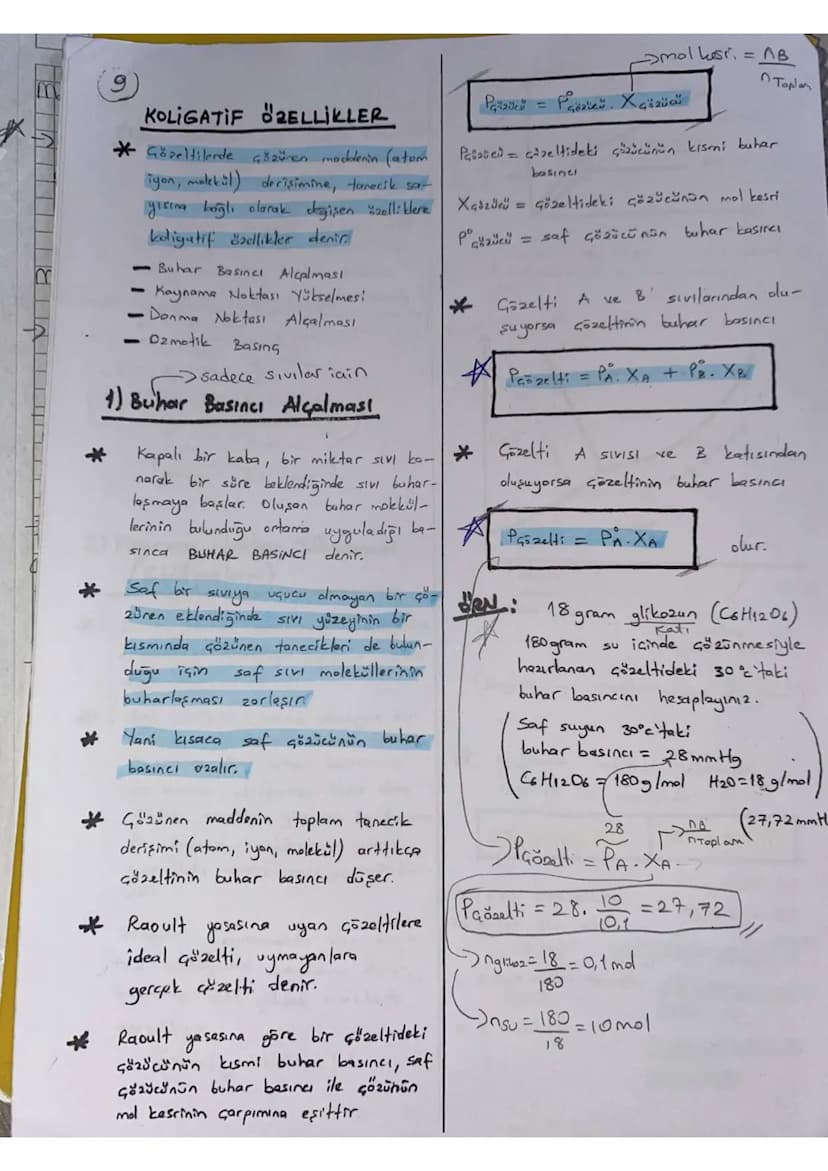 9
KOLİGATİF ÖZELLİKLER
* Çözeltilerde çözünen maddenin (atom
iyon, molekül) derişimine, tanecik sa-
yısına bağlı olarak değişen özelliklere
koligatif özellikler denir.
– Buhar Basıncı Alçalması
– Kaynama Noktası Yükselmesi
– Donma Noktası Alçalması
– Ozmotik Basınç
→ sadece sıvılar için
1) Buhar Basıncı Alçalması
* Kapalı bir kaba, bir miktar sıvı ko-
narak bir süre beklendiğinde sıvı buhar-
laşmaya başlar. Oluşan buhar molekül-
lerinin bulunduğu ortama uyguladığı ba-
sınca BUHAR BASINCI denir.
* Saf bir sıvıya uçucu olmayan bir çö-
zünen eklendiğinde sıvı yüzeyinin bir
kısmında çözünen tanecikleri de bulun-
duğu için saf sıvı moleküllerinin
buharlaşması zorlaşır
* Yani kısaca saf çözücünün buhar
basıncı azalır.
* Çözünen maddenin toplam tanecik
derişimi (atom, iyon, molekül) arttıkça
çözeltinin buhar basıncı düşer.
* Raoult yasasına uyan çözeltilere
ideal çözelti, uymayanlara
gerçek çözelti denir.
* Raoult yasasına göre bir çözeltideki
çözücünün kısmi buhar basıncı, saf
çözücünün buhar basıncı ile çözünün
mol kesrinin çarpımına eşittir
→ mol kesri. = nB / nToplam
Pçözücü = P°çözücü . Xçözücü
Pçözücü = çözeltideki çözücünün kısmi buhar
basıncı
Xçözücü = çözeltideki çözücünün mol kesri
P°çözücü = saf çözücünün buhar basıncı
* Çözelti A ve B sıvılarından olu-
şuyorsa çözeltinin buhar basıncı
☆ Pçözelti = P°A . XA + P°B . XB
* Çözelti A sıvısı ve B katısından
oluşuyorsa çözeltinin buhar basıncı
☆ Pçözelti = P°A . XA olur.
ÖRN : 18 gram glikozun (C6H12O6)
katı
180 gram su içinde çözünmesiyle
hazırlanan çözeltideki 30°c'taki
buhar basıncını hesaplayınız.
(Saf suyun 30°c'taki
buhar basıncı = 28 mmHg
C6H12O6 = 180 g/mol H2O = 18 g/mol)
(27,72 mmH
28
→ nB / nToplam
→ Pçözelti = PA . XA
Pçözelti = 28 . 10/10,1 = 27,72 //
→ nglikoz = 18/180 = 0,1 mol
→ nsu = 180/18 = 10 mol